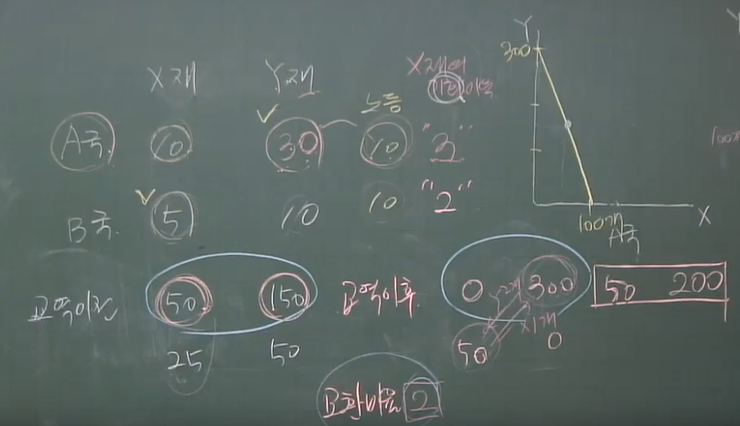 X재 Y재 X재의 기회비용
노동
A국 10 30 10 "3"
B국 5 10 10 "2"
교역이전 50 150 교역이후 0 300 50 200
25 50 50 0
Y재
X재
교환비율 2
Y
300
100개 X
A국
100개
Y